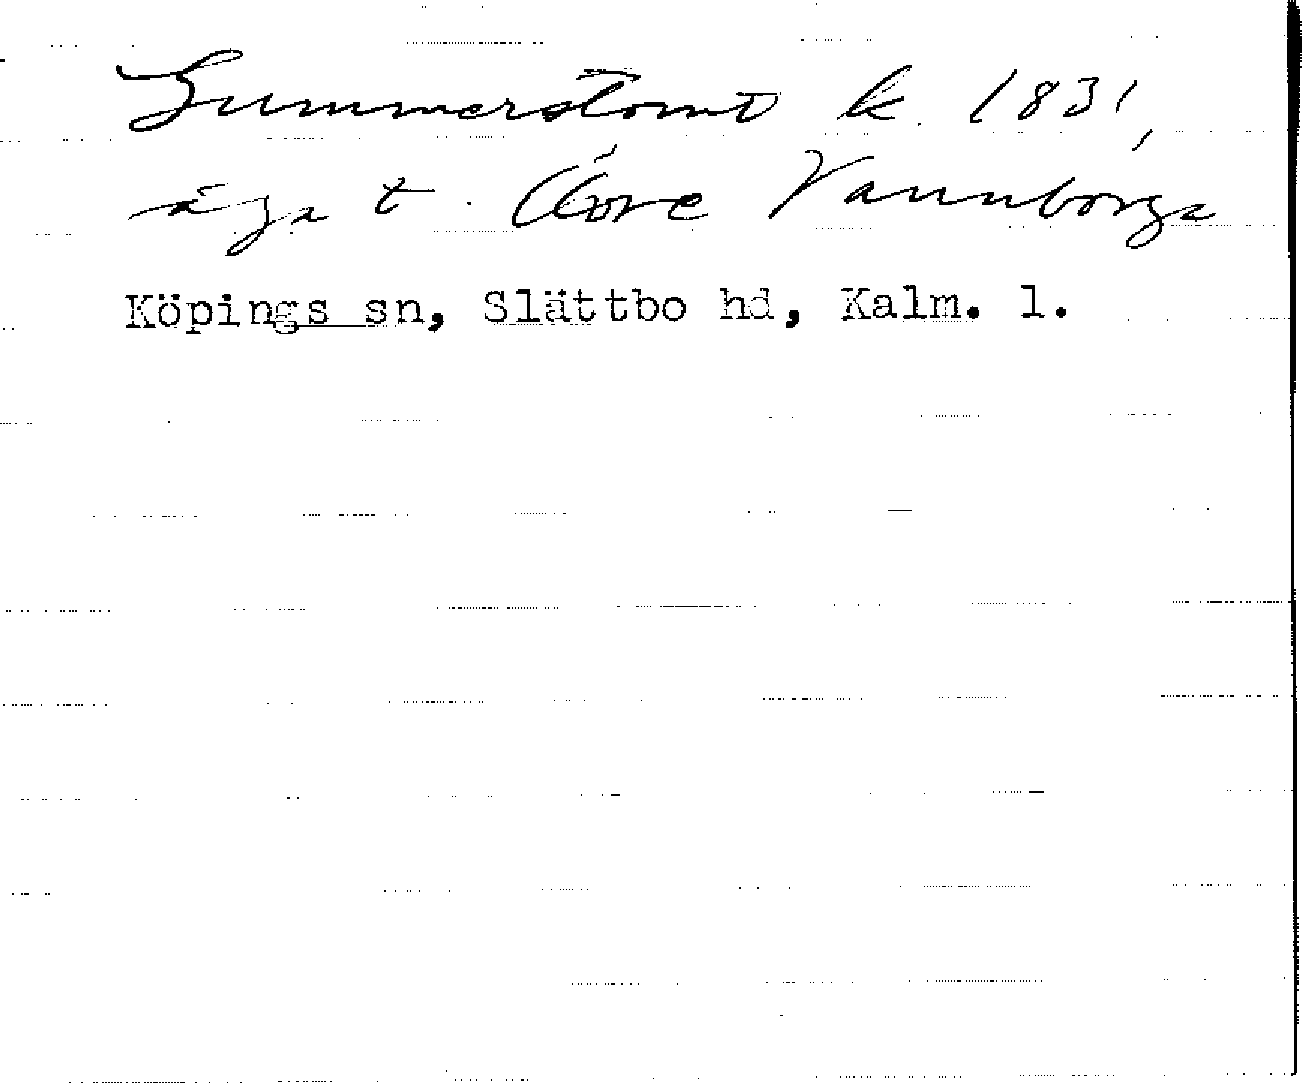 Summerstomt k. 1831,
äga t. Övre Vannborga
Köpings sn, Slättbo hd, Kalm. l.